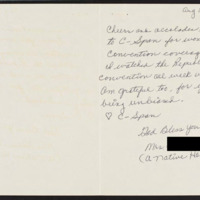 Aug
Cheers and accolades
to C-Span for
Convention coverage
I watched the Republ
convention all week
am grateful too, for y
being unbiased.
♡ C-Span
God Bless You
Mrs.
(a native Ha